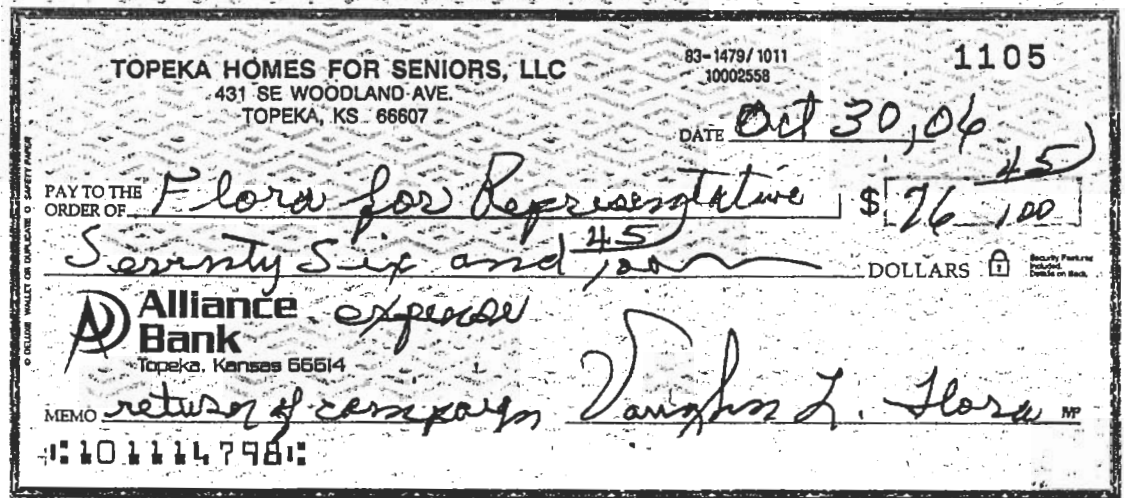 TOPEKA HOMES FOR SENIORS, LLC
431 SE WOODLAND AVE.
TOPEKA, KS 66607
83-1479/1011
10002558
1105
DATE Oct 30, 06
PAY TO THE ORDER OF Flora for Representative $ 76 45/100
Seventy Six and 45/100 DOLLARS
Security Features Included. Details on Back.
Alliance Bank
Topeka, Kansas 66614
expense
MEMO return of campaign Vaughn L. Flora MP
⑆101114798⑆
© DELUXE WALLET OR DUPLICATE © SAFETY PAPER